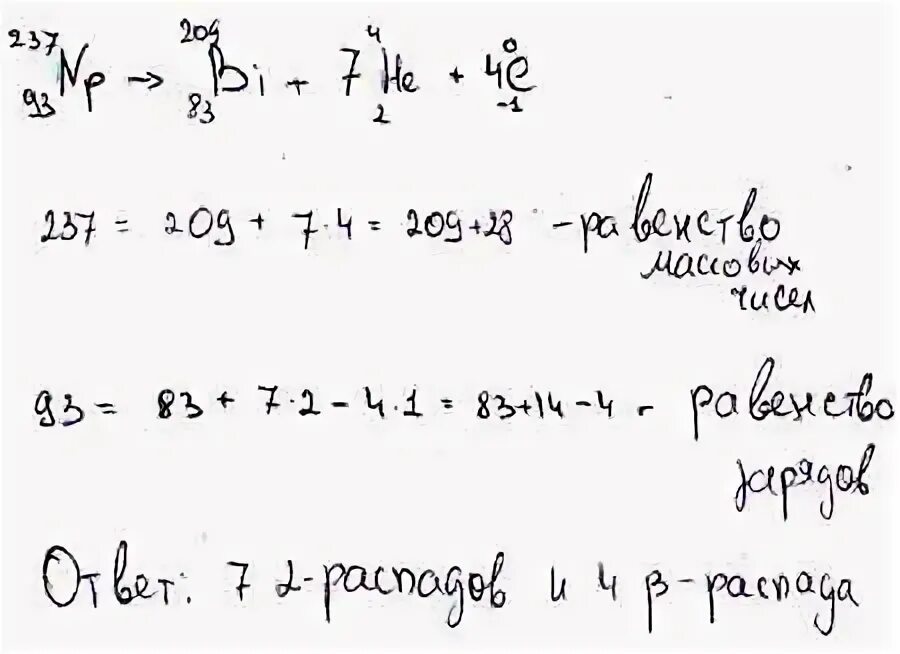 ²³⁷₉₃Np → ²⁰⁹₈₃Bi + 7⁴₂He + 4⁰₋₁e
237 = 209 + 7·4 = 209+28 – равенство
массовых
чисел
93 = 83 + 7·2 – 4·1 = 83+14–4 - равенство
зарядов
Ответ: 7 α-распадов и 4 β-распада